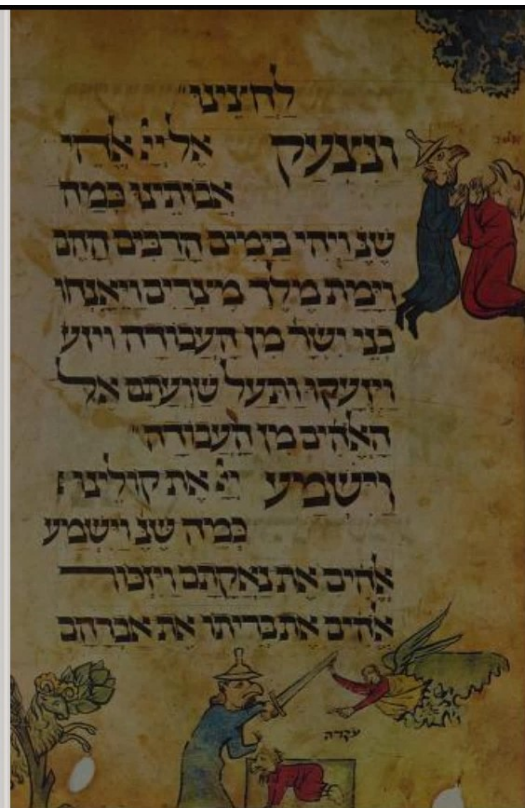 לַחֲצֵינוּ
ונצעק אל יי אלהי
אבותינו כמה
שנ' ויהי בימים הרבים ההם
וימת מלך מצרים ויאנחו
בני ישר' מן העבודה ויזע
ויזעקו ותעל שועתם אל
האלהים מן העבודה
וישמע יי את קולינו
כמה שנ' וישמע
אלהים את נאקתם ויזכור
אלהים את בריתו את אברהם
עקדה